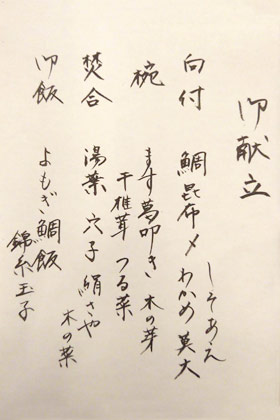 御献立
向付 鯛昆布〆 わかめ 莫大
しそあえ
椀 ます葛叩き 木の芽
干椎茸 つる菜
焚合 湯葉 穴子 絹さや
木の葉
御飯 よもぎ鯛飯
錦糸玉子